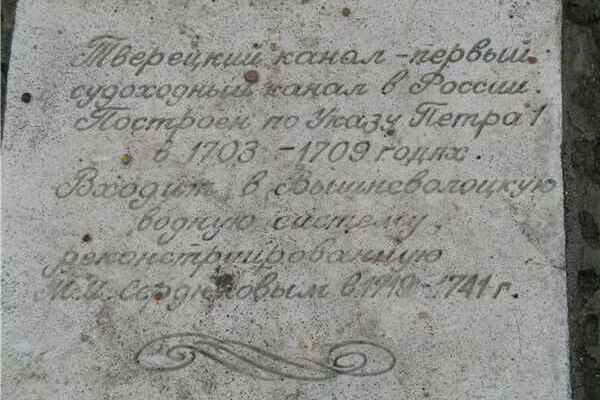 Тверецкий канал - первый
судоходный канал в России.
Построен по Указу Петра 1
в 1703 - 1709 годах.
Входит в Вышневолоцкую
водную систему,
реконструированную
М.И. Сердюковым в 1719-1741 г.